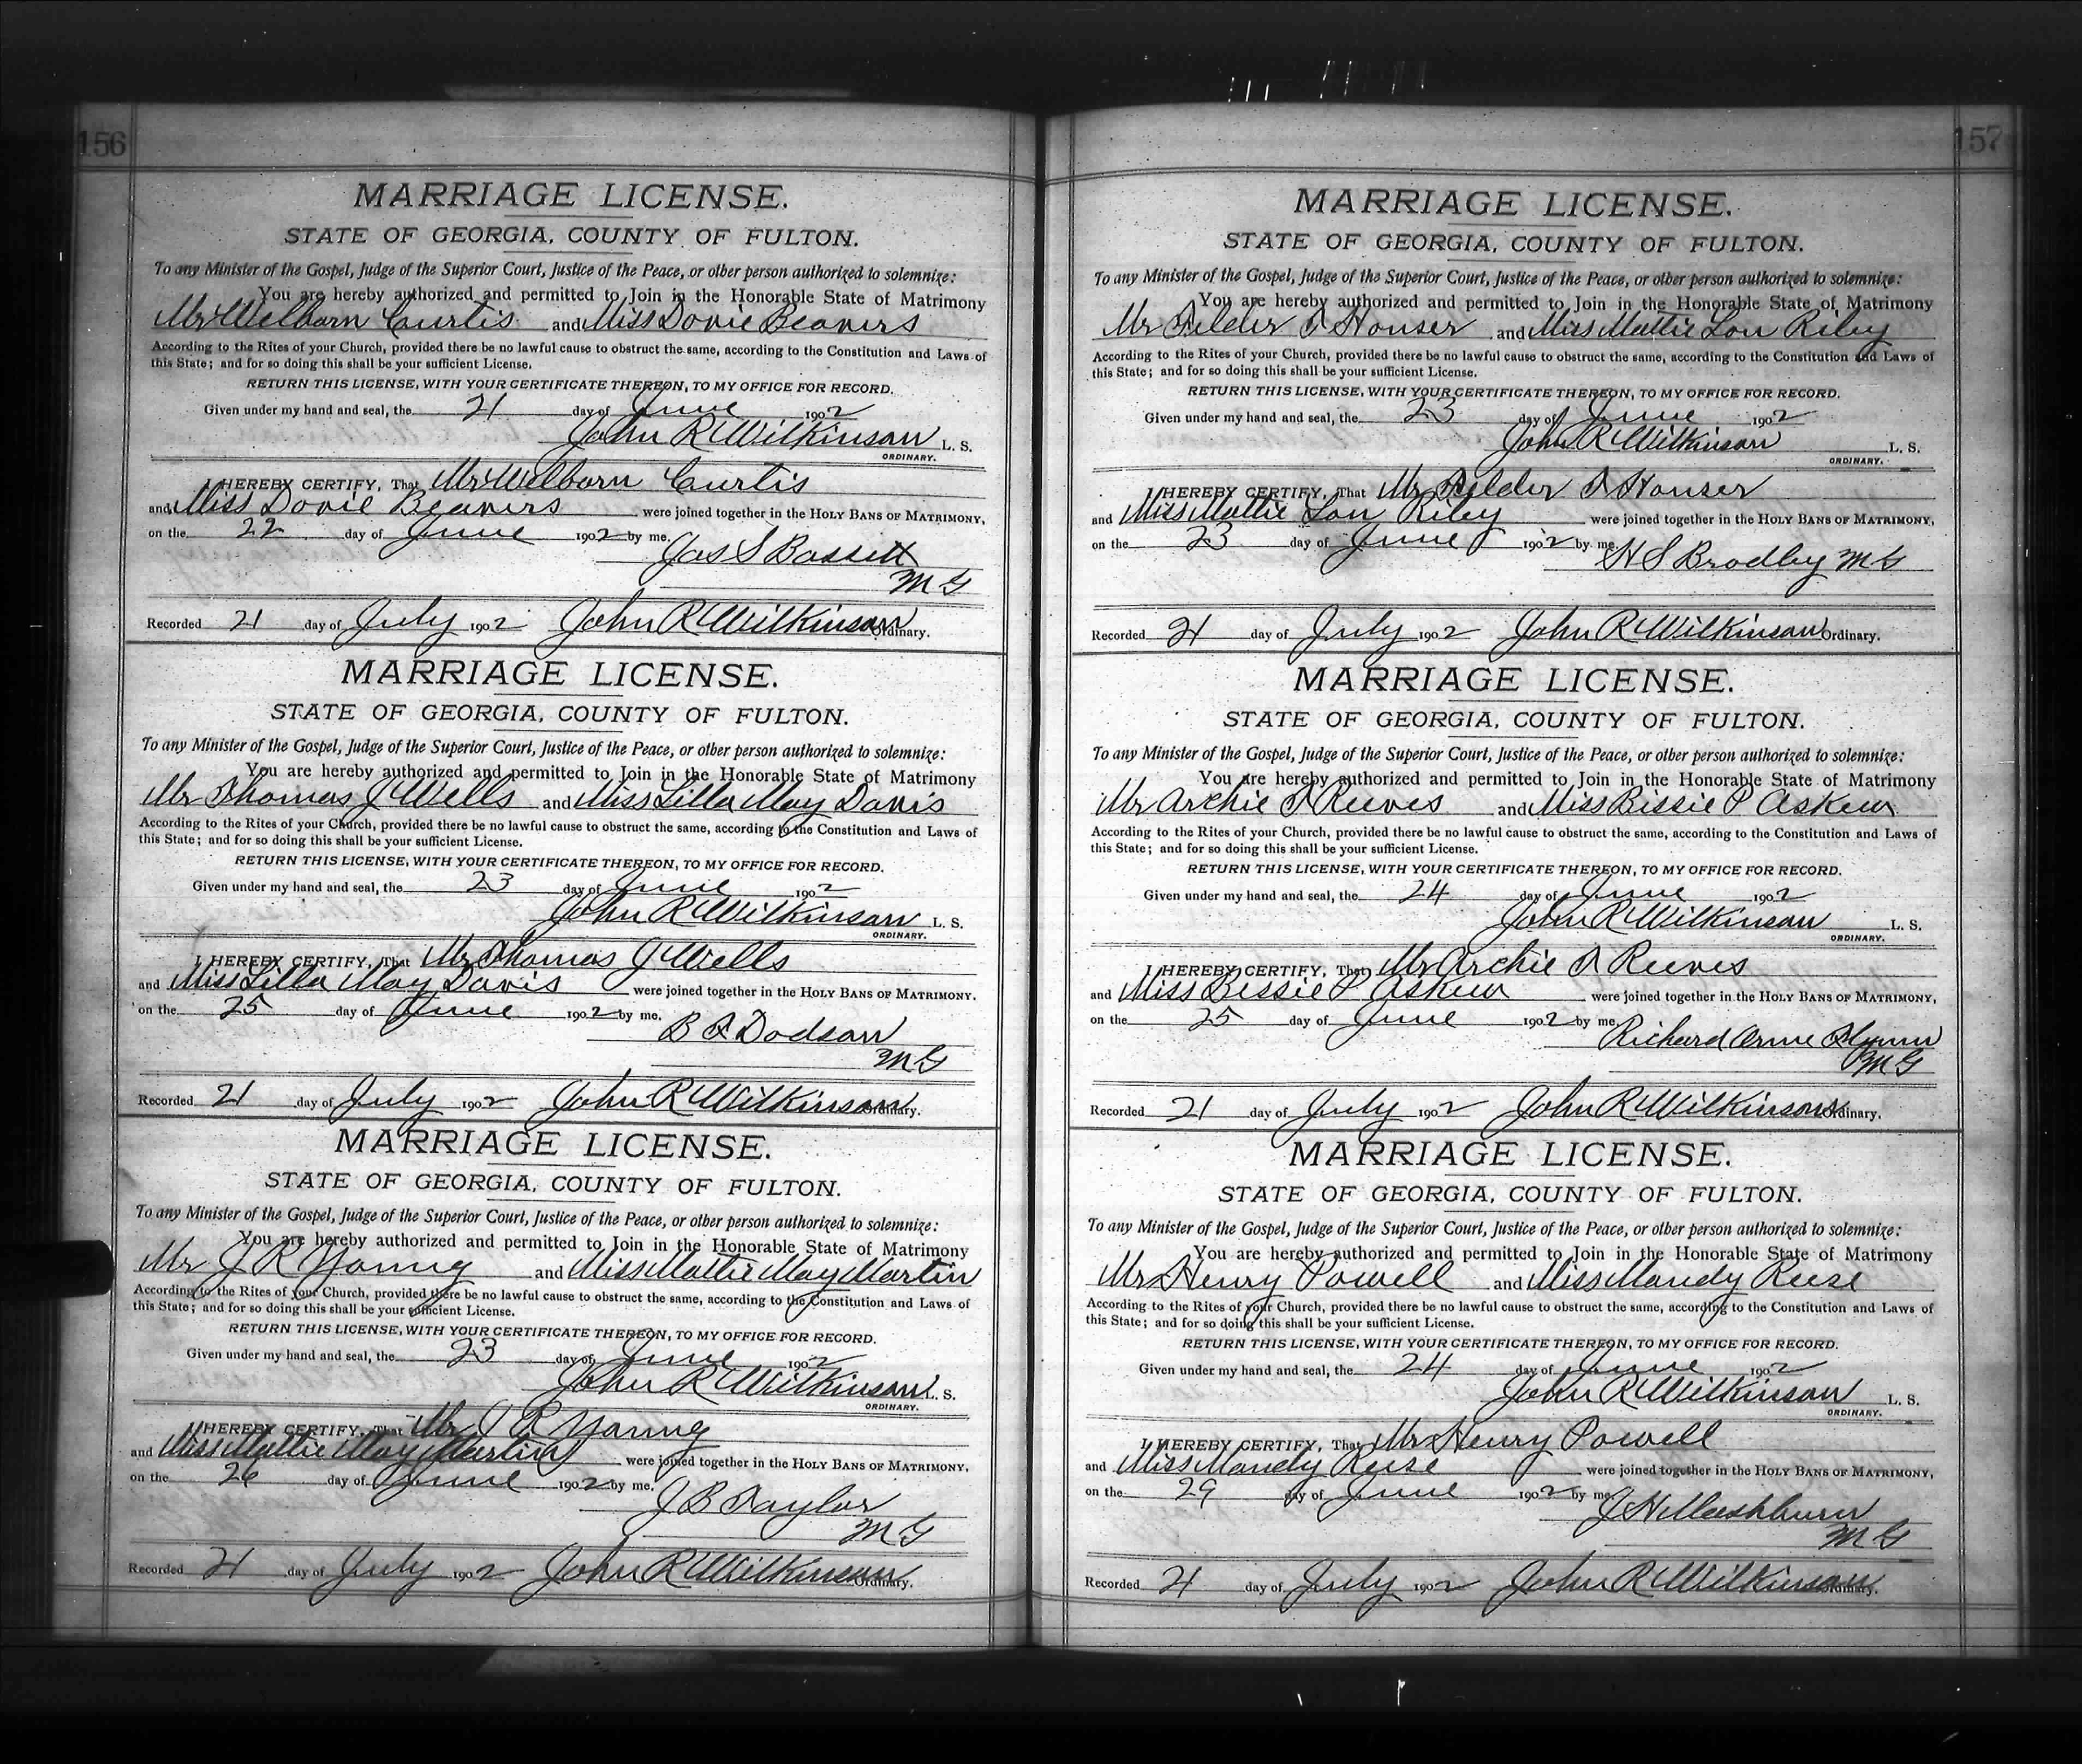 156
MARRIAGE LICENSE.
STATE OF GEORGIA, COUNTY OF FULTON.
To any Minister of the Gospel, Judge of the Superior Court, Justice of the Peace, or other person authorized to solemnize:
You are hereby authorized and permitted to Join in the Honorable State of Matrimony
Mr Welborn Curtis and Miss Dovie Beavers
According to the Rites of your Church, provided there be no lawful cause to obstruct the same, according to the Constitution and Laws of
this State; and for so doing this shall be your sufficient License.
RETURN THIS LICENSE, WITH YOUR CERTIFICATE THEREON, TO MY OFFICE FOR RECORD.
Given under my hand and seal, the 21 day of June 1902
John R Wilkinson L. S.
ORDINARY.
I HEREBY CERTIFY, That Mr Welborn Curtis
and Miss Dovie Beavers were joined together in the HOLY BANS OF MATRIMONY,
on the 22 day of June 1902 by me.
Jas S Bassett
M G
Recorded 21 day of July 1902 John R Wilkinson Ordinary.
MARRIAGE LICENSE.
STATE OF GEORGIA, COUNTY OF FULTON.
To any Minister of the Gospel, Judge of the Superior Court, Justice of the Peace, or other person authorized to solemnize:
You are hereby authorized and permitted to Join in the Honorable State of Matrimony
Mr Thomas J Wells and Miss Lilla May Davis
According to the Rites of your Church, provided there be no lawful cause to obstruct the same, according to the Constitution and Laws of
this State; and for so doing this shall be your sufficient License.
RETURN THIS LICENSE, WITH YOUR CERTIFICATE THEREON, TO MY OFFICE FOR RECORD.
Given under my hand and seal, the 23 day of June 1902
John R Wilkinson L. S.
ORDINARY.
I HEREBY CERTIFY, That Mr Thomas J Wells
and Miss Lilla May Davis were joined together in the HOLY BANS OF MATRIMONY.
on the 25 day of June 1902 by me.
B Dodson
M G
Recorded 21 day of July 1902 John R Wilkinson Ordinary.
MARRIAGE LICENSE.
STATE OF GEORGIA, COUNTY OF FULTON.
To any Minister of the Gospel, Judge of the Superior Court, Justice of the Peace, or other person authorized to solemnize:
You are hereby authorized and permitted to Join in the Honorable State of Matrimony
Mr J R Young and Miss Mattie May Martin
According to the Rites of your Church, provided there be no lawful cause to obstruct the same, according to the Constitution and Laws of
this State; and for so doing this shall be your sufficient License.
RETURN THIS LICENSE, WITH YOUR CERTIFICATE THEREON, TO MY OFFICE FOR RECORD.
Given under my hand and seal, the 23 day of June 1902
John R Wilkinson L. S.
ORDINARY.
I HEREBY CERTIFY, That Mr J R Young
and Miss Mattie May Martin were joined together in the HOLY BANS OF MATRIMONY.
on the 26 day of June 1902 by me.
J B Taylor
M G
Recorded 21 day of July 1902 John R Wilkinson Ordinary.
157
MARRIAGE LICENSE.
STATE OF GEORGIA, COUNTY OF FULTON.
To any Minister of the Gospel, Judge of the Superior Court, Justice of the Peace, or other person authorized to solemnize:
You are hereby authorized and permitted to Join in the Honorable State of Matrimony
Mr Felder F Houser and Miss Mattie Lou Riley
According to the Rites of your Church, provided there be no lawful cause to obstruct the same, according to the Constitution and Laws of
this State; and for so doing this shall be your sufficient License.
RETURN THIS LICENSE, WITH YOUR CERTIFICATE THEREON, TO MY OFFICE FOR RECORD.
Given under my hand and seal, the 23 day of June 1902
John R Wilkinson L. S.
ORDINARY.
I HEREBY CERTIFY, That Mr Felder F Houser
and Miss Mattie Lou Riley were joined together in the HOLY BANS OF MATRIMONY,
on the 23 day of June 1902 by me
H S Bradley M G
Recorded 21 day of July 1902 John R Wilkinson Ordinary.
MARRIAGE LICENSE.
STATE OF GEORGIA, COUNTY OF FULTON.
To any Minister of the Gospel, Judge of the Superior Court, Justice of the Peace, or other person authorized to solemnize:
You are hereby authorized and permitted to Join in the Honorable State of Matrimony
Mr Archie F Reeves and Miss Bessie P Askew
According to the Rites of your Church, provided there be no lawful cause to obstruct the same, according to the Constitution and Laws of
this State; and for so doing this shall be your sufficient License.
RETURN THIS LICENSE, WITH YOUR CERTIFICATE THEREON, TO MY OFFICE FOR RECORD.
Given under my hand and seal, the 24 day of June 1902
John R Wilkinson L. S.
ORDINARY.
I HEREBY CERTIFY, That Mr Archie F Reeves
and Miss Bessie P Askew were joined together in the HOLY BANS OF MATRIMONY,
on the 25 day of June 1902 by me
Richard Orme Flynn
M G
Recorded 21 day of July 1902 John R Wilkinson Ordinary.
MARRIAGE LICENSE.
STATE OF GEORGIA, COUNTY OF FULTON.
To any Minister of the Gospel, Judge of the Superior Court, Justice of the Peace, or other person authorized to solemnize:
You are hereby authorized and permitted to Join in the Honorable State of Matrimony
Mr Henry Powell and Miss Mandy Reese
According to the Rites of your Church, provided there be no lawful cause to obstruct the same, according to the Constitution and Laws of
this State; and for so doing this shall be your sufficient License.
RETURN THIS LICENSE, WITH YOUR CERTIFICATE THEREON, TO MY OFFICE FOR RECORD.
Given under my hand and seal, the 24 day of June 1902
John R Wilkinson L. S.
ORDINARY.
I HEREBY CERTIFY, That Mr Henry Powell
and Miss Mandy Reese were joined together in the HOLY BANS OF MATRIMONY,
on the 29 day of June 1902 by me
J H Mashburn
M G
Recorded 21 day of July 1902 John R Wilkinson Ordinary.